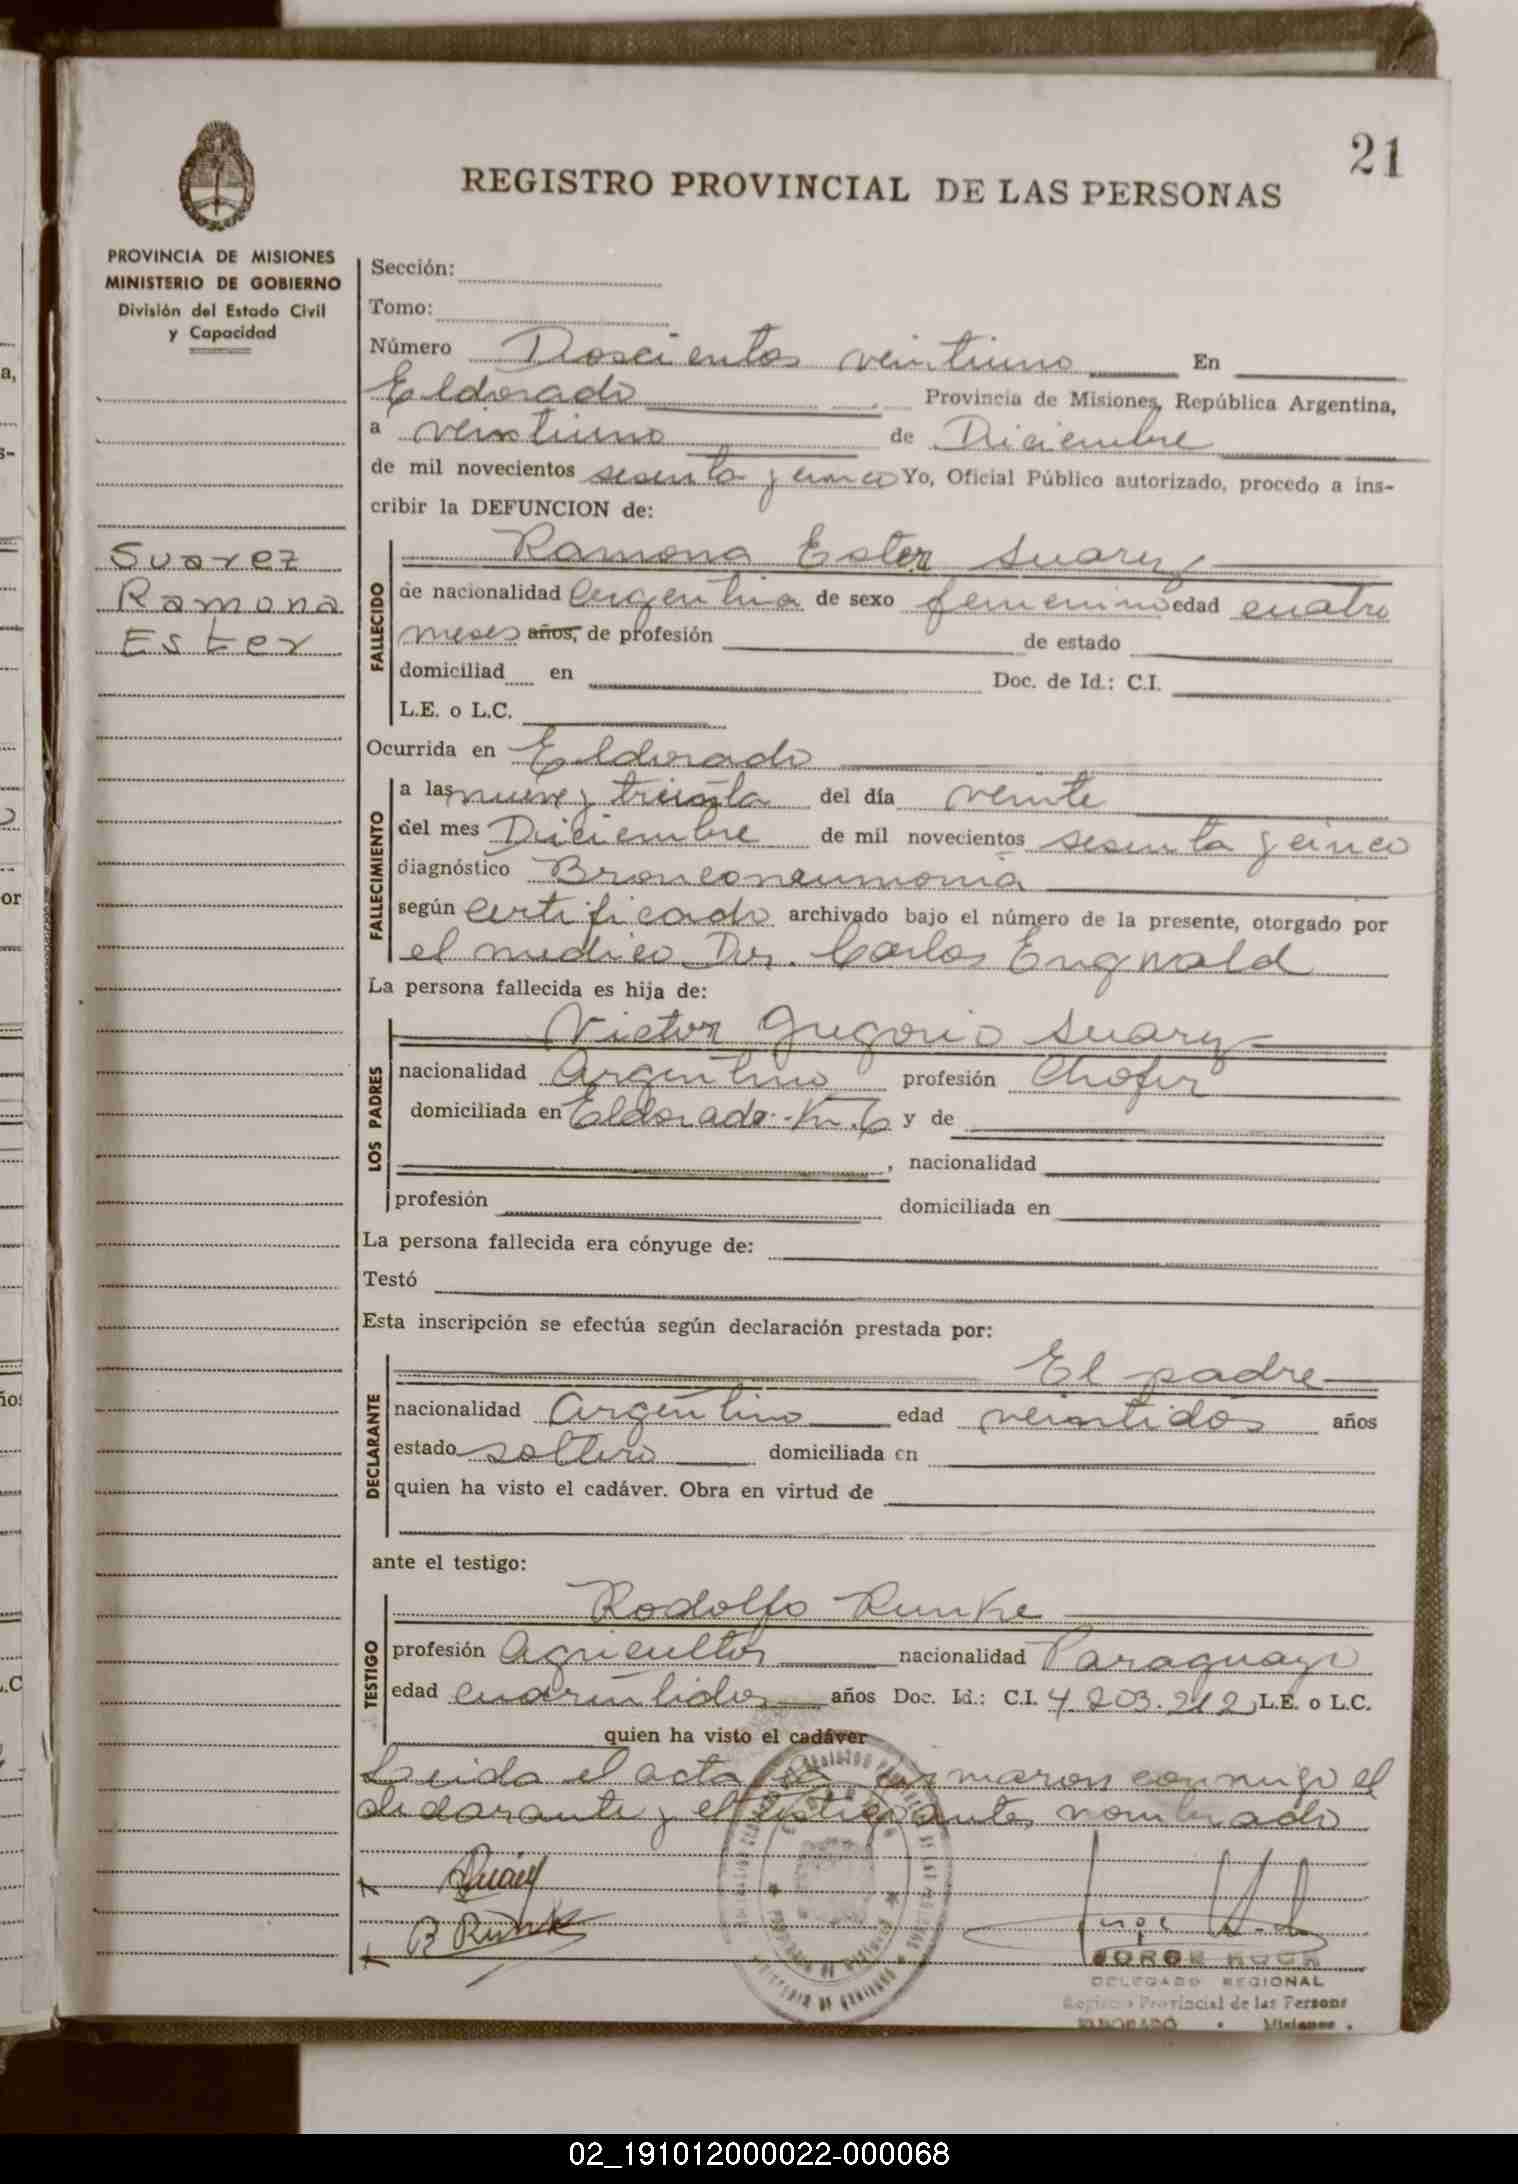 21
REGISTRO PROVINCIAL DE LAS PERSONAS
PROVINCIA DE MISIONES
MINISTERIO DE GOBIERNO
División del Estado Civil
y Capacidad
Suarez
Ramona
Ester
Sección:
Tomo:
Número Doscientos veintiuno En
Eldorado Provincia de Misiones, República Argentina,
a veintiuno de Diciembre
de mil novecientos sesenta y cinco Yo, Oficial Público autorizado, procedo a ins-
cribir la DEFUNCION de:
FALLECIDO
Ramona Ester Suarez
de nacionalidad Argentina de sexo femenino edad cuatro
meses años, de profesión de estado
domiciliad en Doc. de Id.: C.I.
L.E. o L.C.
Ocurrida en Eldorado
FALLECIMIENTO
a las nueve y treinta del día veinte
del mes Diciembre de mil novecientos sesenta y cinco
diagnóstico Bronconeumonia
según certificado archivado bajo el número de la presente, otorgado por
el medico Dr. Carlos Engwald
La persona fallecida es hija de:
LOS PADRES
Victor Gregorio Suarez
nacionalidad Argentino profesión Chofer
domiciliada en Eldorado-Km.6 y de
, nacionalidad
profesión domiciliada en
La persona fallecida era cónyuge de:
Testó
Esta inscripción se efectúa según declaración prestada por:
DECLARANTE
El padre
nacionalidad Argentino edad veintidos años
estado soltero domiciliada en
quien ha visto el cadáver. Obra en virtud de
ante el testigo:
TESTIGO
Rodolfo Runke
profesión Agricultor nacionalidad Paraguayo
edad cuarentidos años Doc. Id.: C.I. 4.203.212 L.E. o L.C.
quien ha visto el cadáver
Leida el acta la firmaron conmigo el
declarante y el testigo antes nombrado
Suarez
R Runke
JORGE KOCH
DELEGADO REGIONAL
Registro Provincial de las Persons
ELDORADO - Misiones
02_191012000022-000068